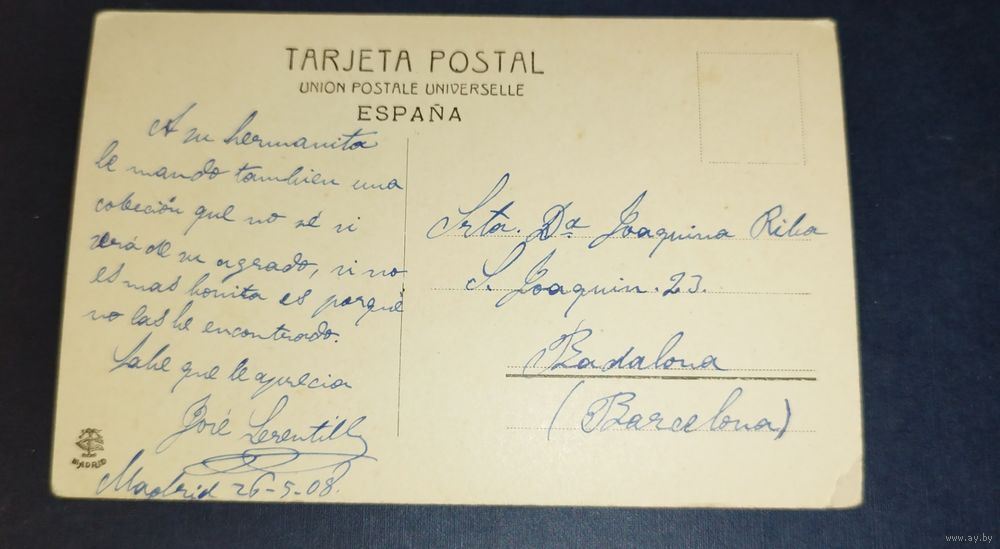 TARJETA POSTAL
UNION POSTALE UNIVERSELLE
ESPAÑA
A su hermanita
le mando tambien una
colección que no sé si
será de su agrado, si no
es mas bonita es porqué
no las he encontrado.
Sabe que le aprecia
José
Madrid 26-5-08.
MADRID
Srta. Dª Joaquina Riba
S. Joaquin. 23.
Badalona
(Barcelona)
www.ay.by